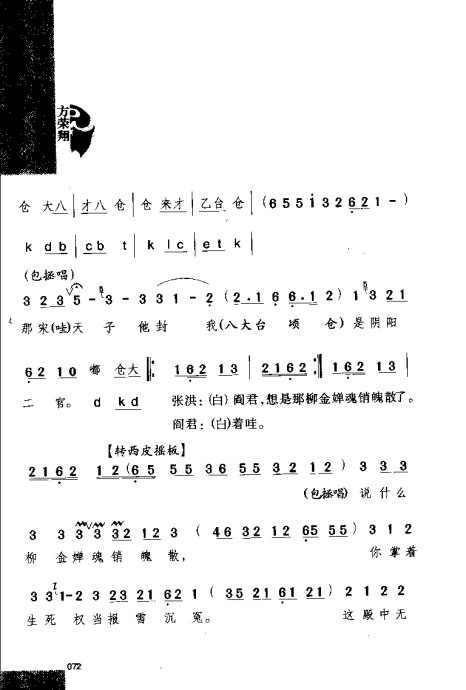 方荣翔
仓 大八|才八 仓|仓 来才|乙台 仓|(6 5 5 i 3 2 6 2 1 -)
k d b|c b t|k l c|e t k|
(包拯唱)
3 2 3 5 - 3 - 3 3 1 - 2 (2·1 6 6·1 2) 1 3 2 1
那宋(哇)天 子 他封 我(八大台 顷 仓)是阴阳
6 2 1 0 嘟 仓大 ‖: 1 6 2 1 3 | 2 1 6 2 :‖: 1 6 2 1 3 :‖
二 官。 d k d 张洪:(白)阎君,想是那柳金婵魂销魄散了。
阎君:(白)着哇。
【转西皮摇板】
2 1 6 2 1 2 (6 5 5 5 3 6 5 5 3 2 1 2) 3 3 3
(包拯唱) 说 什 么
3 3 3 3 3 2 1 2 3 (4 6 3 2 1 2 6 5 5 5) 3 1 2
柳 金 婵 魂 销 魄 散, 你 掌 着
3 3 1 - 2 3 2 3 2 1 6 2 1 (3 5 2 1 6 1 2 1) 2 1 2 2
生 死 权 当 报 雪 沉 冤。 这 殿 中 无
072